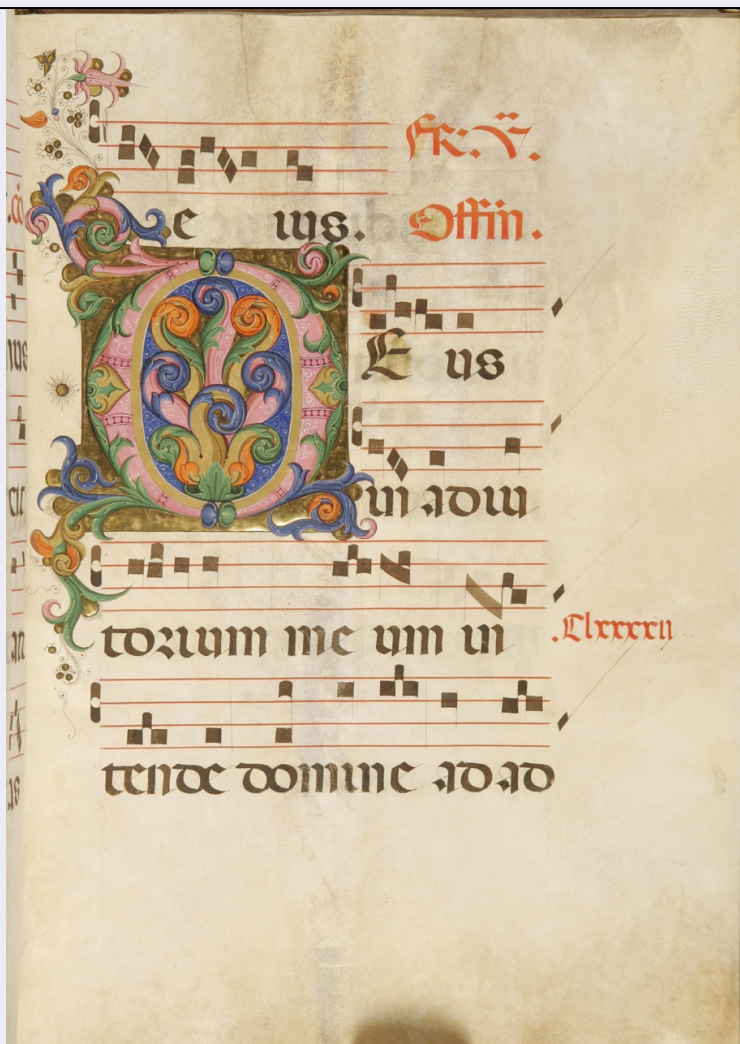 e ius. FR: V.
Offin.
DEus
in adiu
torium me um in
.Clxxxxii
tende domine ad ad